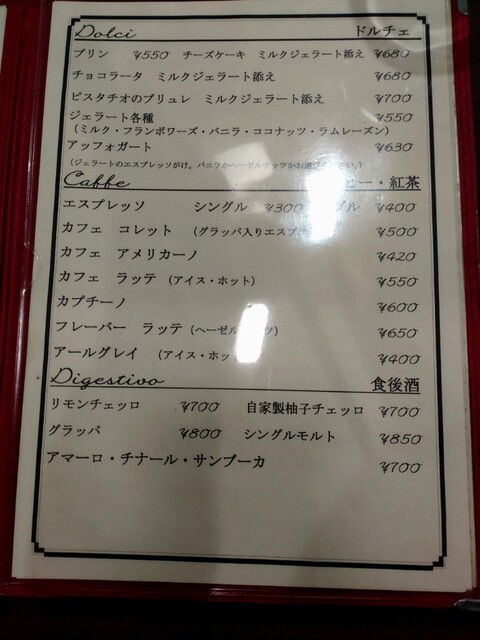 Dolci ドルチェ
プリン ¥550 チーズケーキ ミルクジェラート添え ¥680
チョコラータ ミルクジェラート添え ¥680
ピスタチオのブリュレ ミルクジェラート添え ¥700
ジェラート各種 ¥550
（ミルク・フランボワーズ・バニラ・ココナッツ・ラムレーズン）
アッフォガート ¥630
（ジェラートのエスプレッソがけ。バニラかヘーゼルナッツかお選びください。）
Caffe ヒー・紅茶
エスプレッソ シングル ¥300 ブル ¥400
カフェ コレット （グラッパ入りエスプ ¥500
カフェ アメリカーノ ¥420
カフェ ラッテ （アイス・ホット） ¥550
カプチーノ ¥600
フレーバー ラッテ （ヘーゼル ツ） ¥650
アールグレイ （アイス・ホッ ） ¥400
Digestivo 食後酒
リモンチェッロ ¥700 自家製柚子チェッロ ¥700
グラッパ ¥800 シングルモルト ¥850
アマーロ・チナール・サンブーカ ¥700